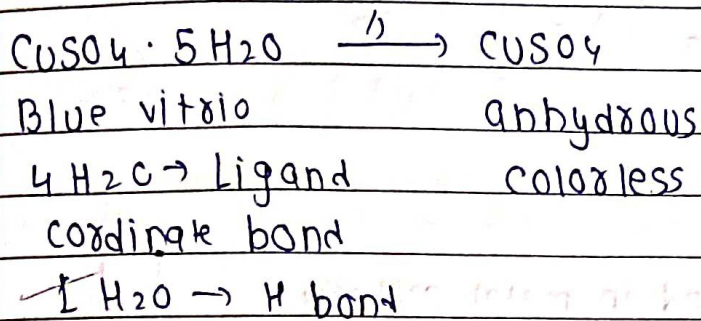 CuSO4 · 5H2O —Δ→ CUSO4
Blue vitrio anhydrous
4 H2O → Ligand colorless
cordinate bond
1 H2O → H bond